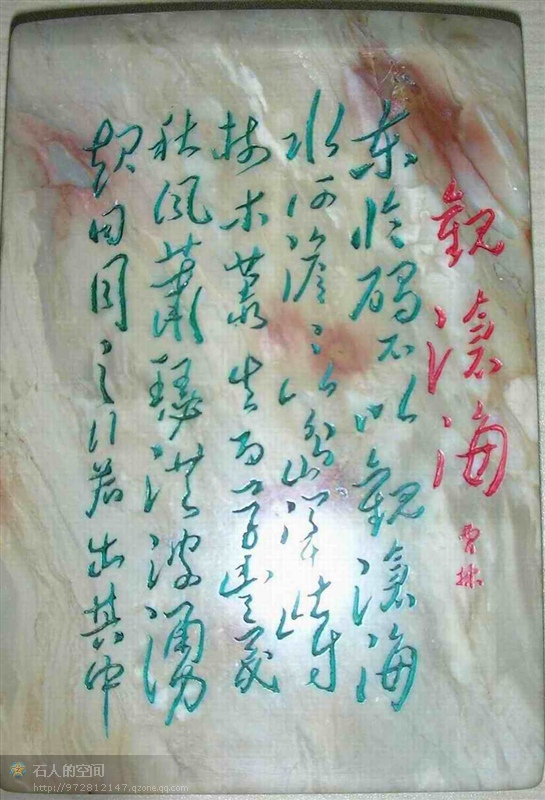 觀滄海
曹操
东临碣石以觀滄海
水何澹々山岛竦峙
树木丛生百草豊茂
秋风蕭瑟洪波湧
起日月之行若出其中
石人的空间
http://972812147.qzone.qq.com